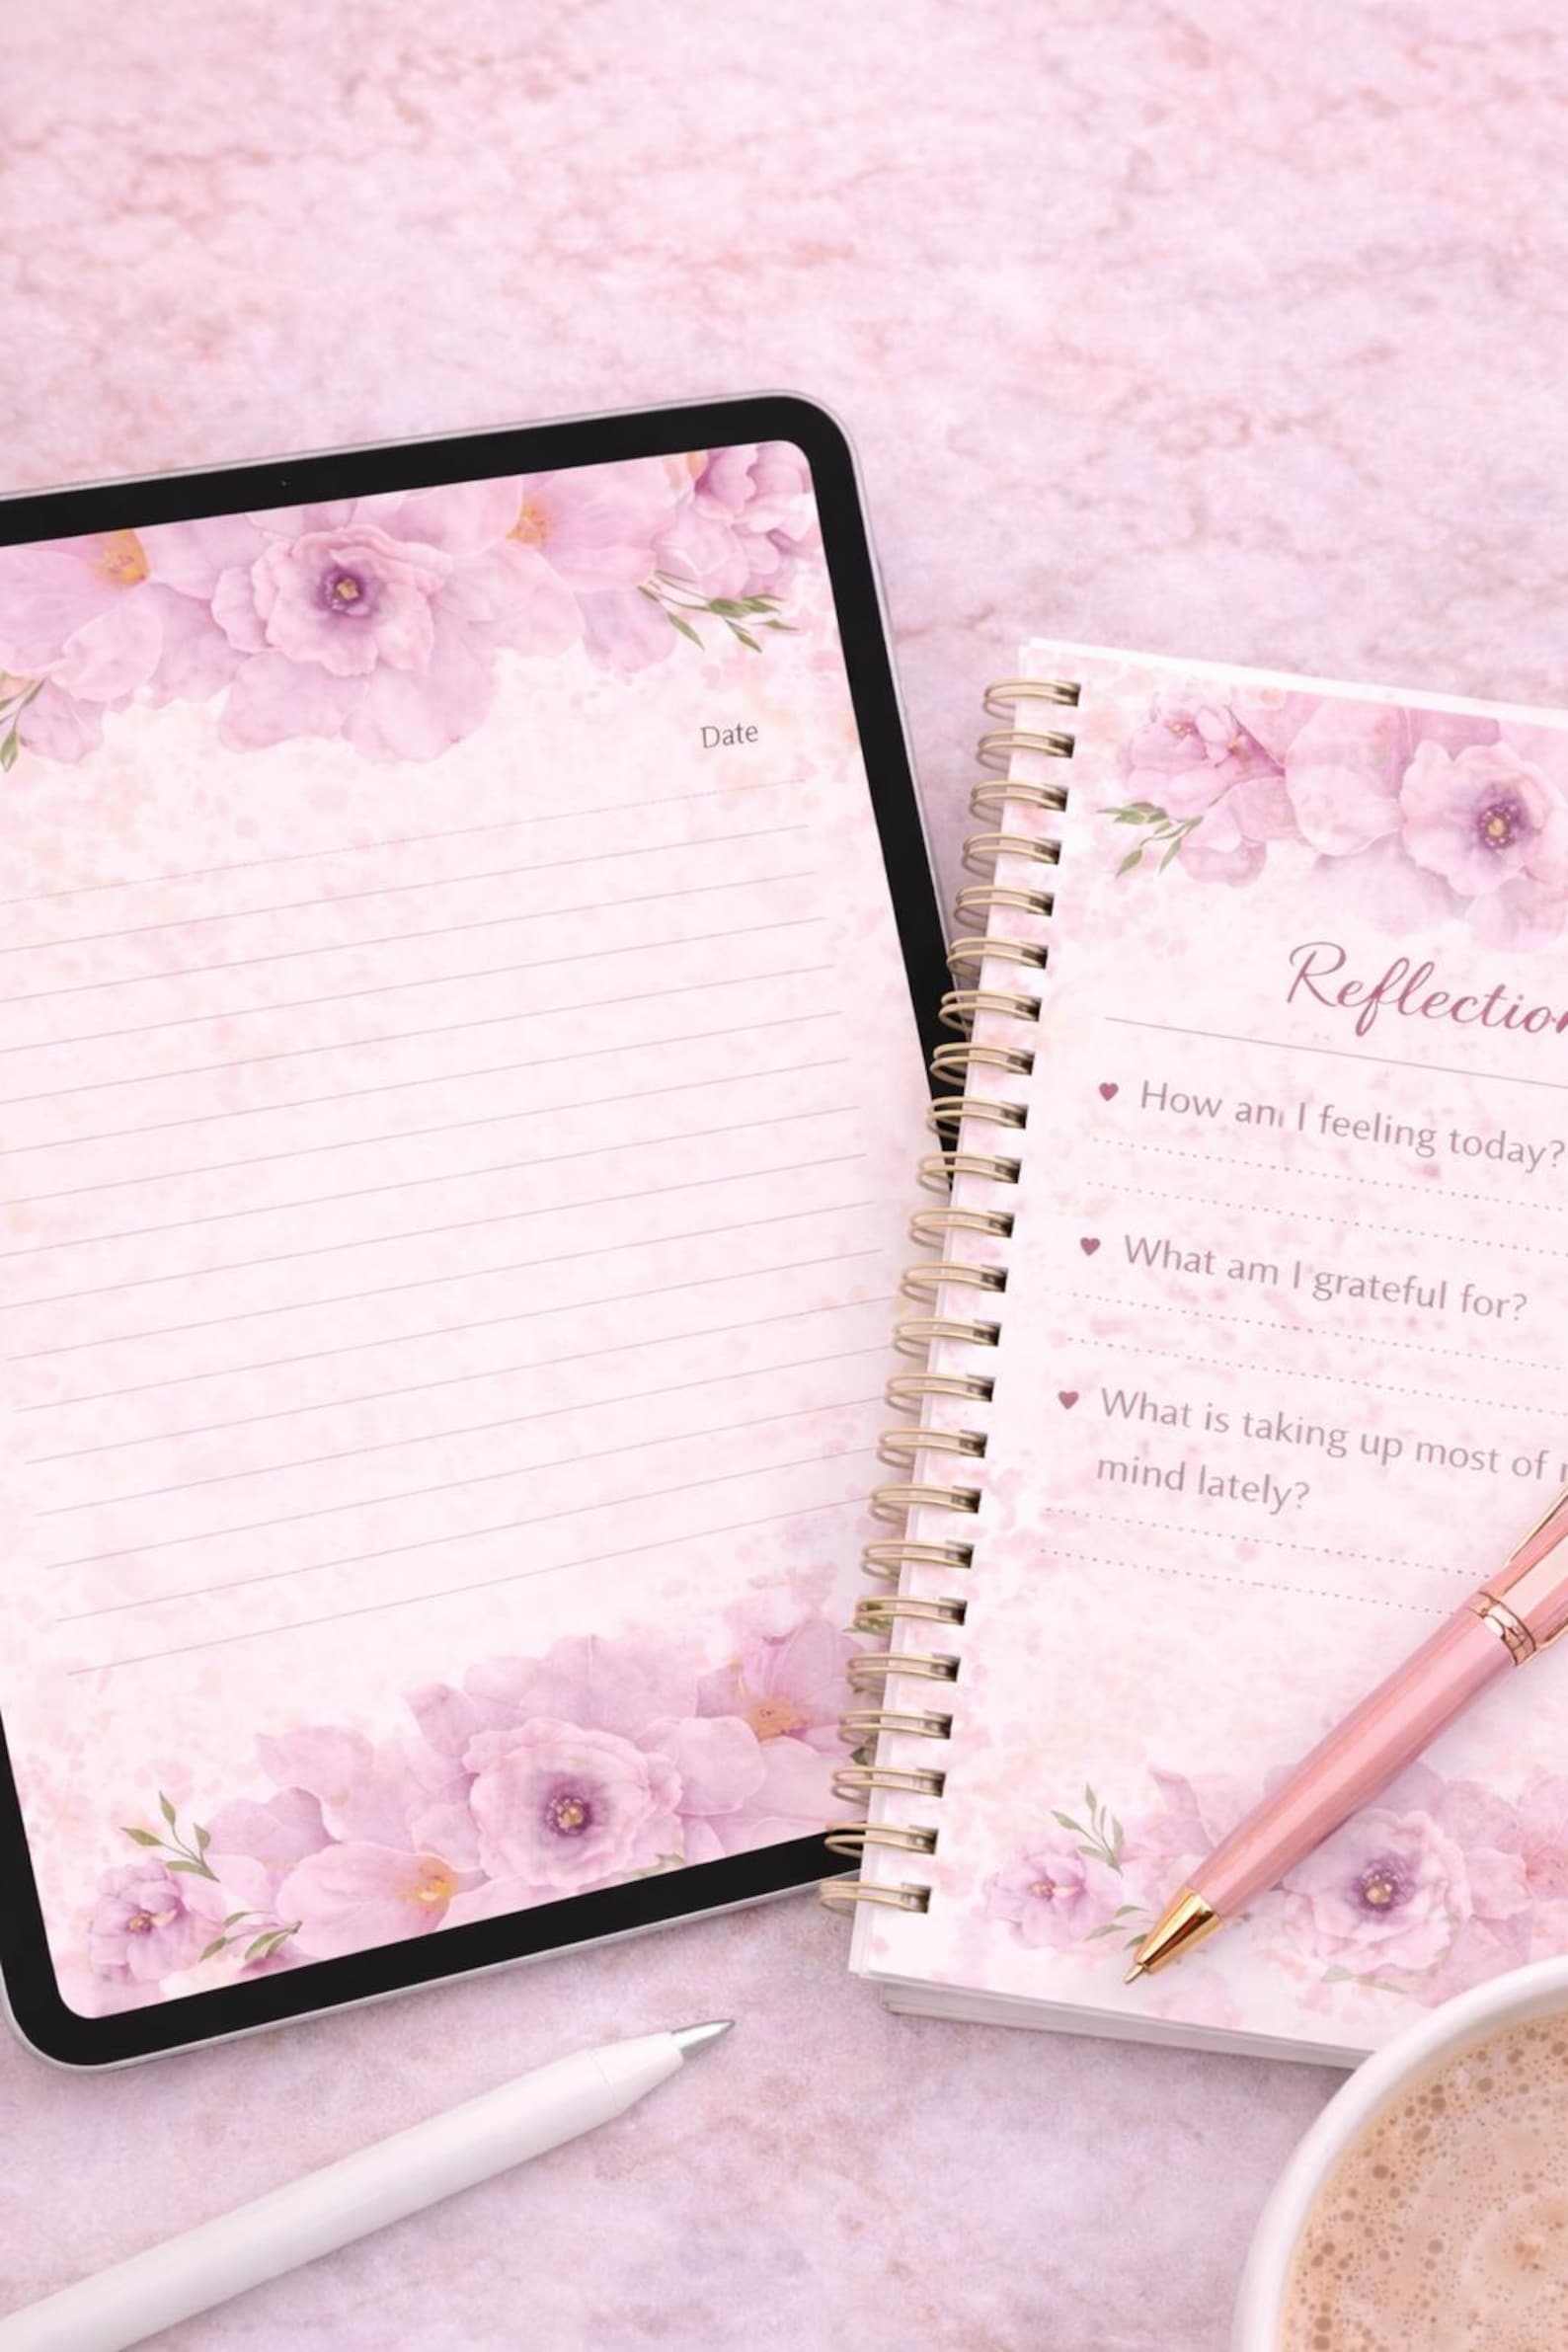 Date
Reflection
How am I feeling today?
What am I grateful for?
What is taking up most of
mind lately?